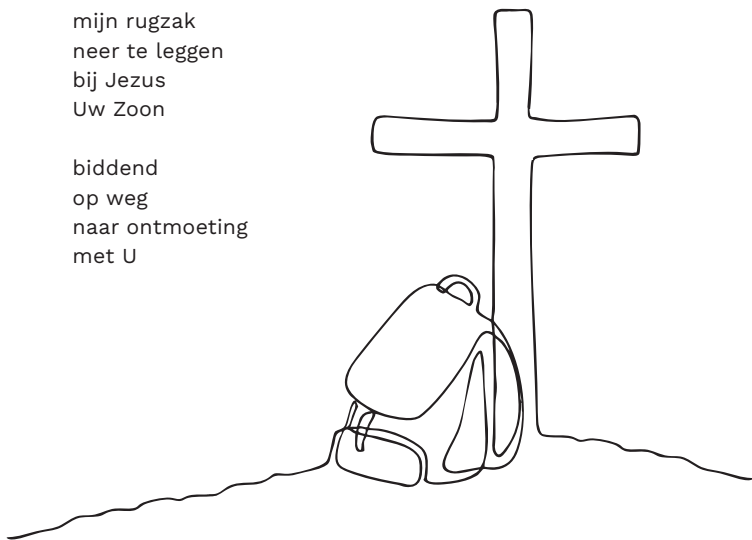 mijn rugzak
neer te leggen
bij Jezus
Uw Zoon
biddend
op weg
naar ontmoeting
met U